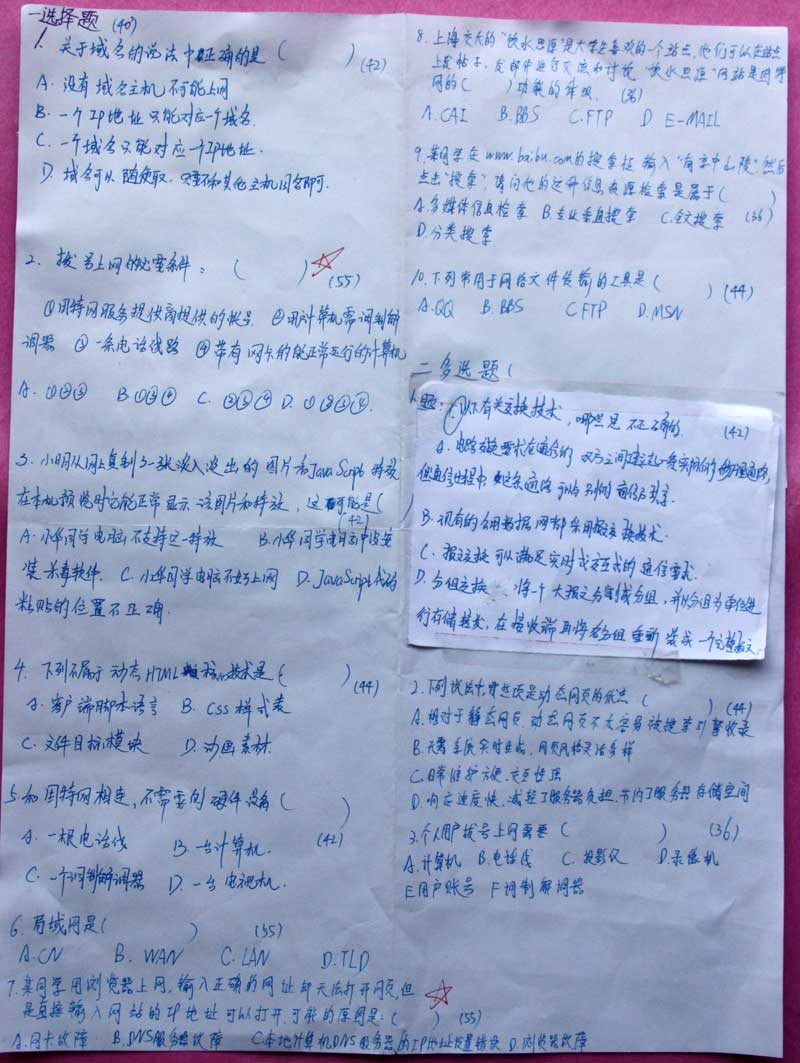 一选择题 (40)
1. 关于域名的说法中正确的是 ( ) (42)
A. 没有域名主机不可能上网
B. 一个IP地址只能对应一个域名.
C. 一个域名只能对应一个IP地址.
D. 域名可以随便取. 只要不和其他主机同名即可.
2. 拨号上网的必要条件: ( ) (55)
①因特网服务提供商提供的帐号 ②用计算机需调制解
调器 ③一条电话线路 ④带有网卡的能正常运行的计算机
A. ①②③ B ①③④ C. ②③④ D. ①②③④.
3. 小明从网上复制了一张淡入淡出的图片和JavaScript特效
在本机预览时它能正常显示该图片和特效, 这可能是( )
(42)
A. 小华同学电脑不支持这一特效 B. 小华同学电脑中没安
装杀毒软件. C. 小华同学电脑不好上网 D. JavaScript代码
粘贴的位置不正确.
4. 下列不属于动态HTML核心技术是( ) (44)
A. 客户端脚本语言 B. CSS样式表
C. 文件目标模块 D. 动画素材.
5. 和因特网相连, 不需要的硬件设备 ( )
A. 一根电话线 B. 一台计算机. (42)
C. 一个调制解调器 D. 一台电视机.
6. 局域网是( ) (55)
A. CN B. WAN C. LAN D. TLD
7. 某同学用浏览器上网, 输入正确的网址却无法打开网页, 但
是直接输入网站的IP地址可以打开, 可能的原因是: ( ) (55)
A. 网卡故障 B. DNS服务器故障 C. 本地计算机DNS服务器的IP地址设置错误 D. 浏览器故障
8. 上海交大的"饮水思源"是大学生喜欢的一个站点, 他们可以在站点
上发帖子, 发邮件进行交流和讨论. "饮水思源"网站是因特
网的( )功能的体现. (36)
A. CAI B. BBS C. FTP D. E-MAIL
9. 某同学在www.baibu.com的搜索栏输入"南京中山陵", 然后
点击"搜索", 请问他的这种信息资源检索是属于( )
A. 多媒体信息检索 B. 专业垂直搜索 C. 全文搜索 (36)
D. 分类搜索.
10. 下列常用于网络文件传输的工具是( ) (44)
A. QQ B. BBS C FTP D. MSN
二 多选题 (
题: 1. 以下有关交换技术, 哪些是不正确的. (42)
A. 电路交换要求在通信的双方之间建立起一条实际的物理通路,
但通信过程中, 这条通路可以与别的通信方共享.
B. 现有的公用数据网都采用报文交换技术.
C. 报文交换可以满足实时或交互式的通信要求.
D. 分组交换 将一个大报文分割成分组, 并以分组为单位进
行存储转发, 在接收端再将各分组重新装成一个完整报文.
2. 下列说法中哪些项是动态网页的优点 ( ) (44)
A. 相对于静态网页, 动态网页不太容易被搜索引擎收录
B. 无需系统实时生成, 网页风格灵活多样
C. 日常维护方便, 交互性强
D. 响应速度快, 减轻了服务器负担, 节约了服务器存储空间
3. 个人用户拨号上网需要 ( ) (36)
A. 计算机 B. 电话线 C. 投影仪 D. 录像机
E 用户账号 F 调制解调器